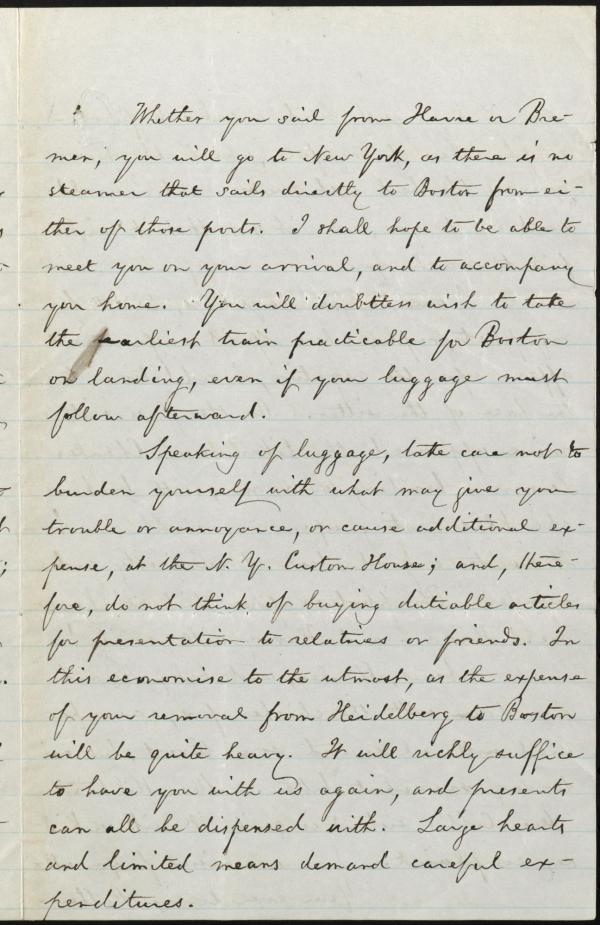 Whether you sail from Havre or Bre-
men, you will go to New York, as there is no
steamer that sails directly to Boston from ei-
ther of those ports. I shall hope to be able to
meet you on your arrival, and to accompany
you home. You will doubtless wish to take
the earliest train practicable for Boston
on landing, even if your luggage must
follow afterward.
Speaking of luggage, take care not to
burden yourself with what may give you
trouble or annoyance, or cause additional ex-
pense, at the N. Y. Custom House; and, there-
fore, do not think of buying dutiable articles
for presentation to relatives or friends. In
this economise to the utmost, as the expense
of your removal from Heidelberg to Boston
will be quite heavy. It will richly suffice
to have you with us again, and presents
can all be dispensed with. Large hearts
and limited means demand careful ex-
penditures.